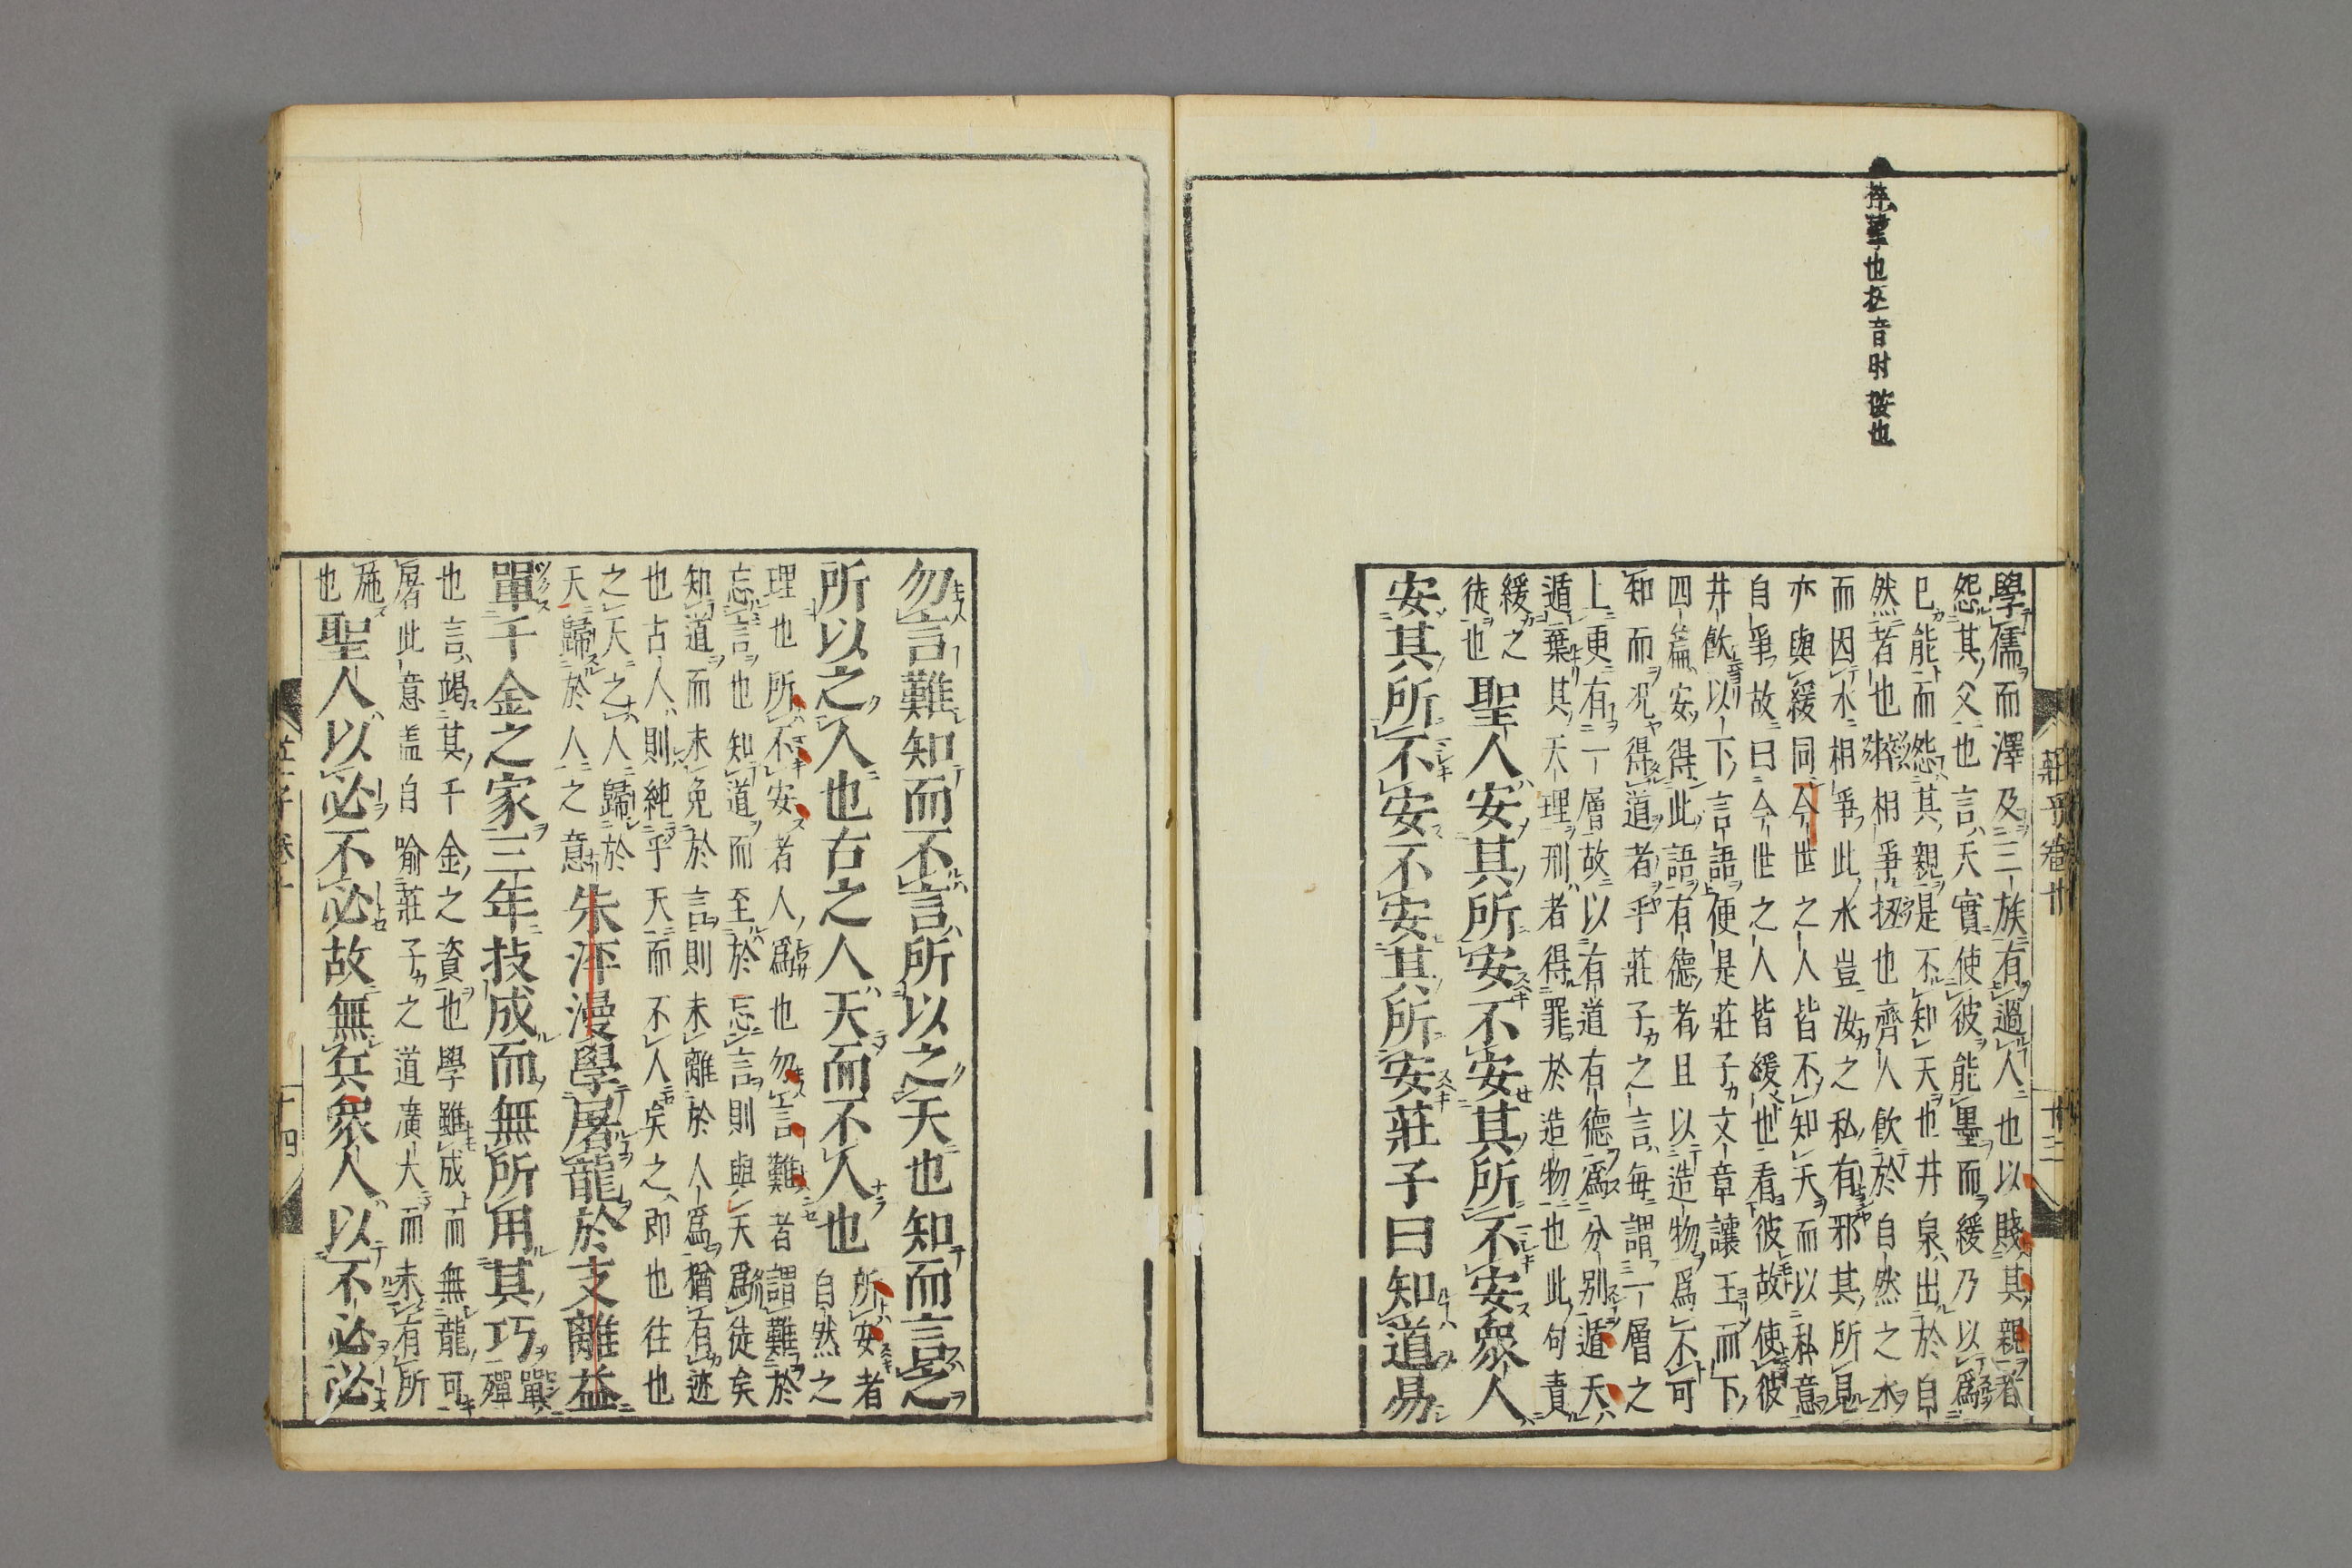 學儒而澤及三族有過人也以賤其親者
怨其父也言天實使彼能墨而緩乃以爲
已能而怨其親是不知天也井泉出於自
然者也捽相爭扭也齊人飲於自然之水
而因水相爭此水豈汝之私有邪其所見
亦與緩同今世之人皆不知天而以私意
自爭故曰今世之人皆緩也看彼故使彼
井飲以下言語便是莊子文章讓王而下
四篇安得此語有德者且以造物爲不可
知而况得道者乎莊子之言每謂一層之
上更有一層故以有道有德爲分别遁天
遁棄其天理刑者得罪於造物也此句責
緩之
徒也
聖人安其所安不安其所不安衆人
安其所不安不安其所安莊子曰知道易
莊子卷十
十三
也
勿言難知而不言所以之天也知而言之
所以之人也古之人天而不人也
所安者
自然之
理也所不安者人爲也勿言難者謂難於
忘言也知道而至於忘言則與天爲徒矣
知道而未免於言則未離於人爲猶有迹
也古人則純乎天而不人矣之即也往也
之天之人歸於
天歸於人之意
朱泙漫學屠龍於支離益
單千金之家三年技成而無所用其巧
單
殫
也言竭其千金之資也學雖成而無龍可
屠此意盖自喻莊子之道廣大而未有所
施
也
聖人以必不必故無兵衆人以不必必
莊子卷十
十四